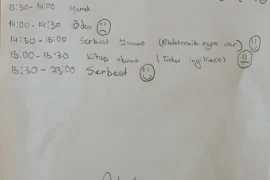 13:30 - 14:00 Yemek
14:00 - 14:30 Ödev
14:30 - 15:00 Serbest Zaman (elektronik oyun var)
15:00 - 15:30 Kitap okuma (Türkçe ingilizce)
15:30 - 23:00 Serbest